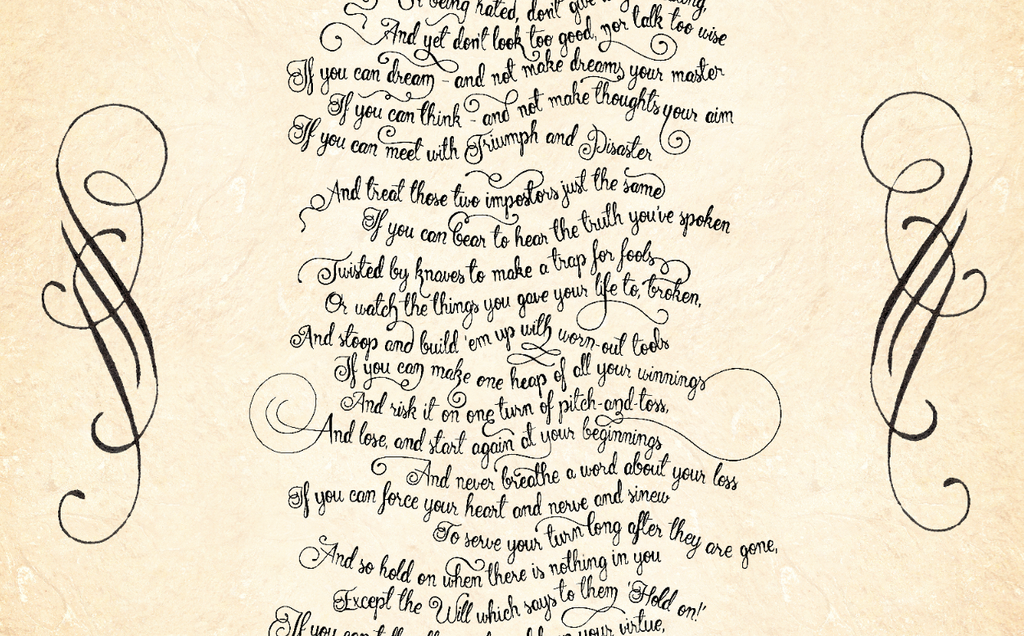 Or being hated, don't give
And yet don't look too good, nor talk too wise
If you can dream - and not make dreams your master
If you can think - and not make thoughts your aim
If you can meet with Triumph and Disaster
And treat those two impostors just the same
If you can bear to hear the truth you've spoken
Twisted by knaves to make a trap for fools
Or watch the things you gave your life to, broken,
And stoop and build 'em up with worn-out tools
If you can make one heap of all your winnings
And risk it on one turn of pitch-and-toss,
And lose, and start again at your beginnings
And never breathe a word about your loss
If you can force your heart and nerve and sinew
To serve your turn long after they are gone,
And so hold on when there is nothing in you
Except the Will which says to them 'Hold on!'
If you can your virtue,